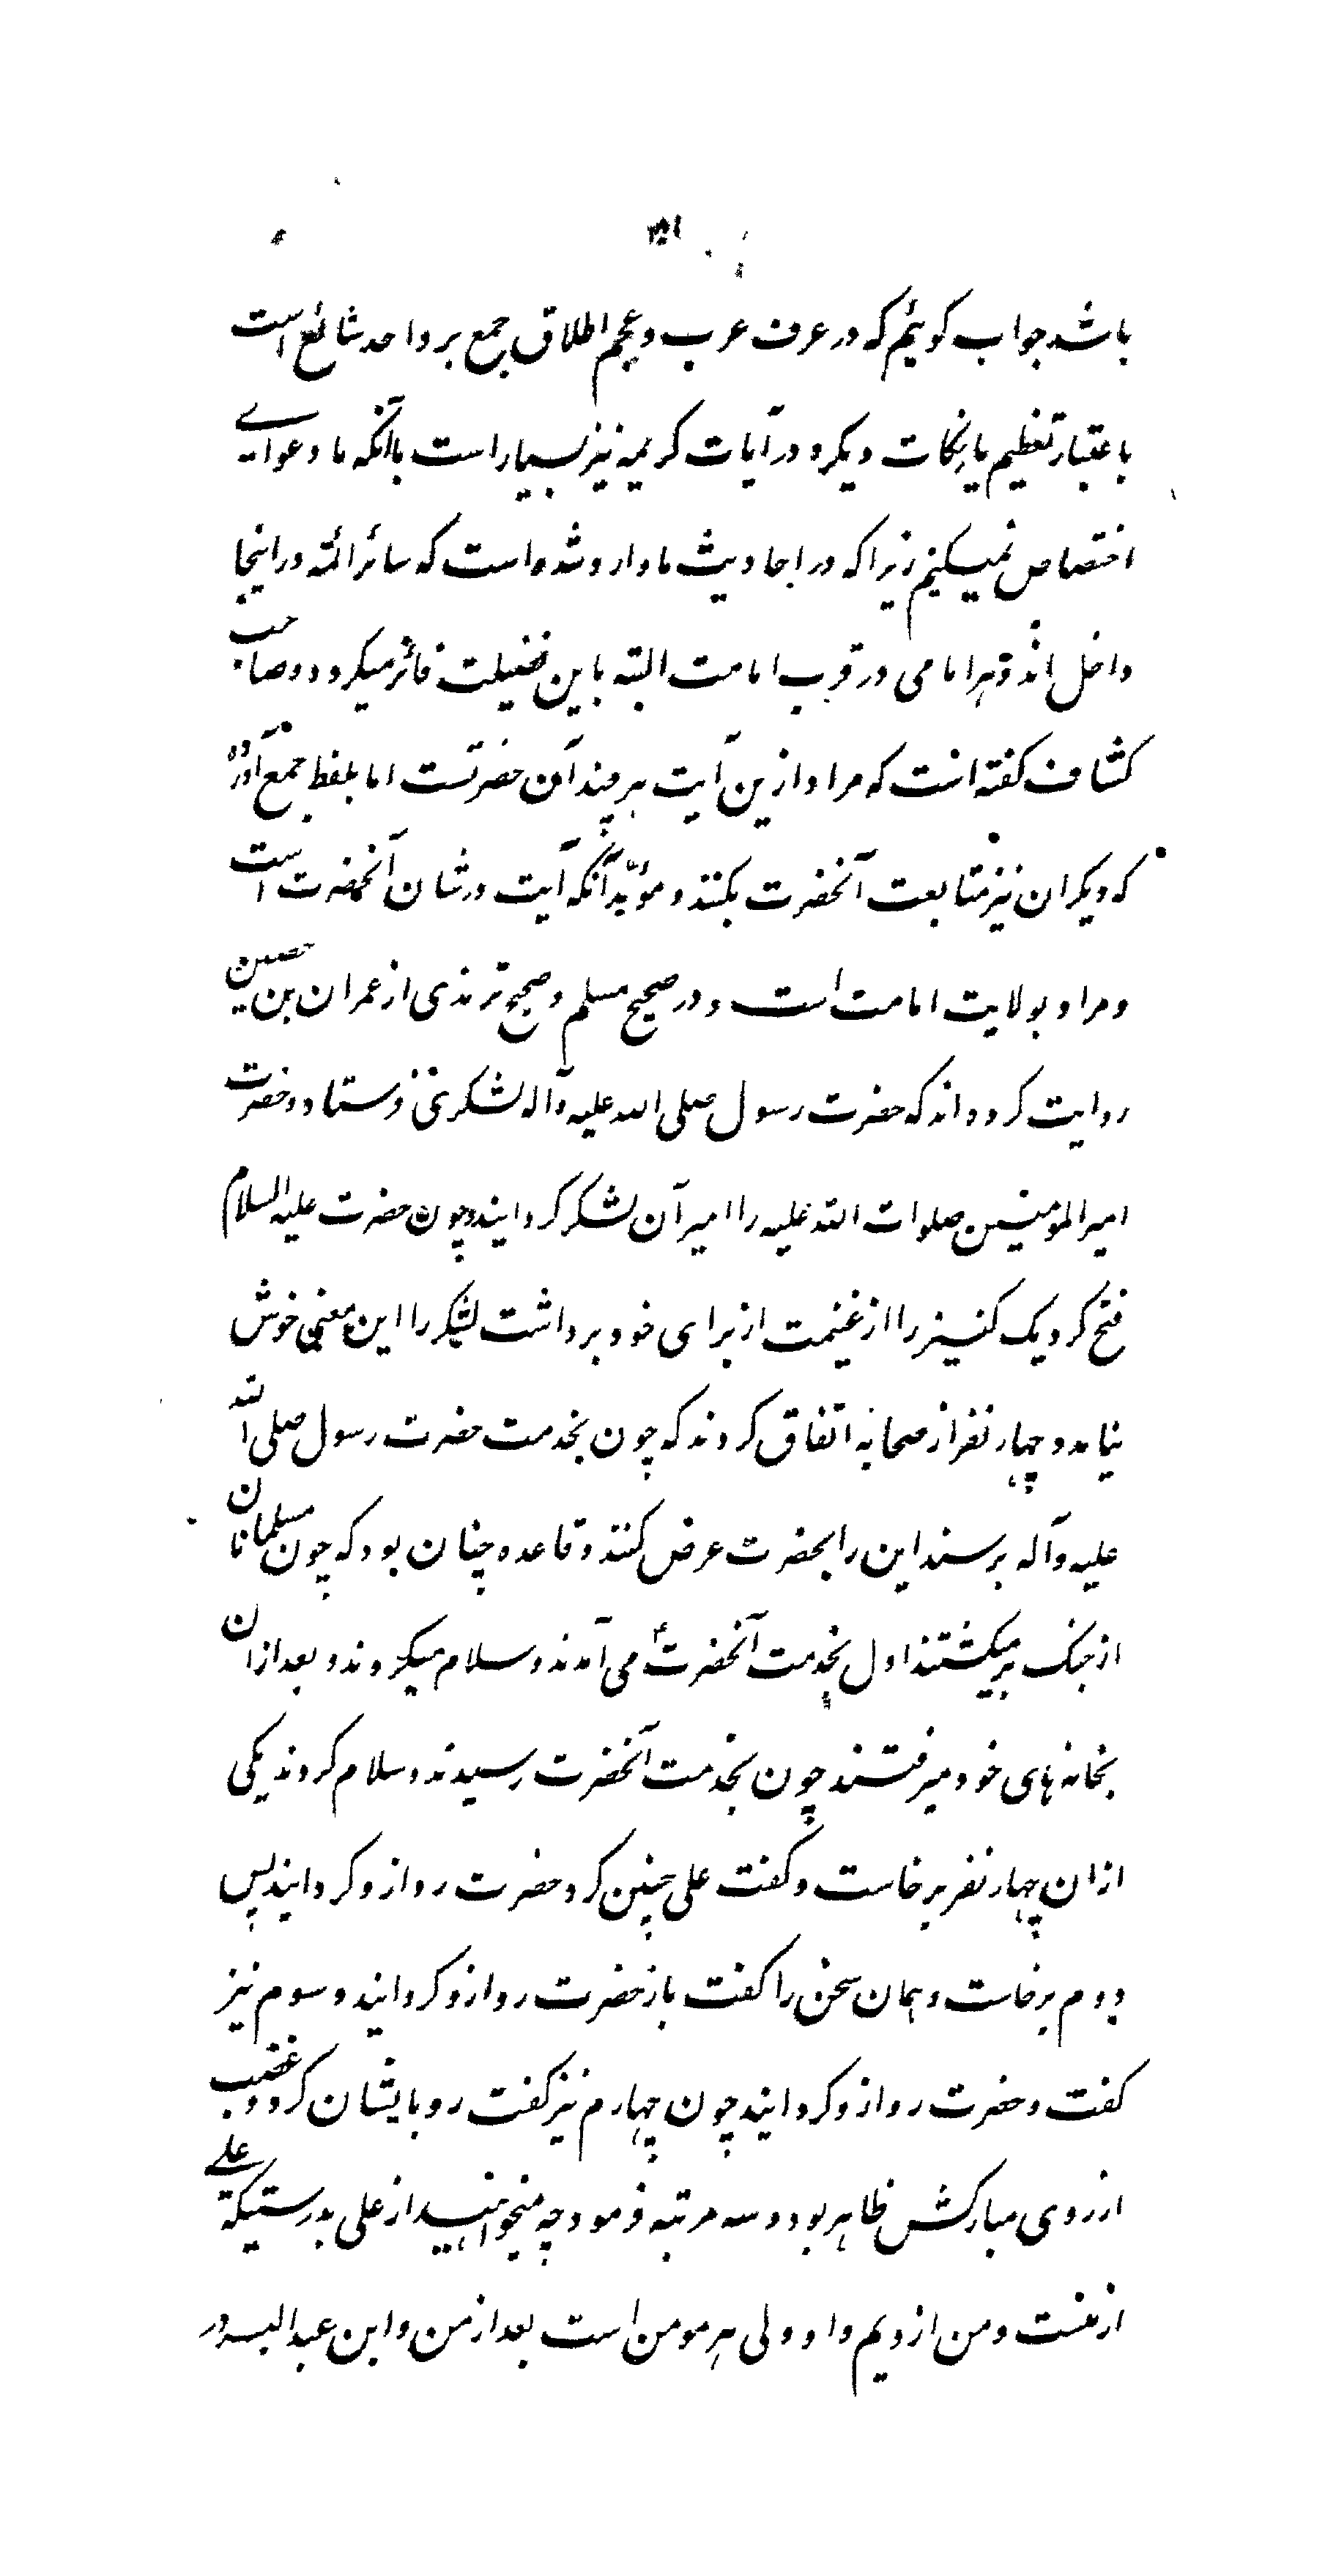 باشد جواب کوئیم که در عرف عرب و عجم اطلاق جمع بر واحد شائع است
باعتبار تعظیم یا نکات دیکر و در آیات کریمه نیز بسیار است باآنکه ما دعوای
اختصاص نمیکنیم زیرا که در احادیث ما وارد شده است که سائر ائمه در اینجا
داخل اند و هر امامی در قرب امامت البته باین فضیلت فائز میکردد و صاحب
کشاف کفته است که مراد ازین آیت هر چند آن حضرتست اما بلفظ جمع آورده
که دیکران نیز متابعت آنحضرت بکنند و مؤید آنکه آیت در شان آنحضرت است
و مراد بولایت امامت است و در صحیح مسلم و صحیح ترمذی از عمران بن حصین
روایت کرده اند که حضرت رسول صلی الله علیه وآله لشکری فرستاد و حضرت
امیرالمومنین صلوات الله علیه را امیر آن لشکر کردانید و چون حضرت علیه السلام
فتح کرد یک کنیز را از غنیمت از برای خود برداشت لشکر را این معنی خوش
نیامد و چهار نفر از صحابه اتفاق کردند که چون بخدمت حضرت رسول صلی الله
علیه وآله برسند این را بحضرت عرض کنند و قاعده چنان بود که چون مسلمانان
از جنک برمیکشتند اول بخدمت آنحضرت می آمدند و سلام میکردند و بعد ازان
بخانه های خود میرفتند چون بخدمت آنحضرت رسیدند و سلام کردند یکی
ازان چهار نفر برخاست و کفت علی چنین کرد حضرت رو ازو کردانید پس
دوم برخاست و همان سخن را کفت باز حضرت رو ازو کردانید و سوم نیز
کفت و حضرت رو ازو کردانید چون چهارم نیز کفت رو بایشان کرد و غضب
از روی مبارکش ظاهر بود و سه مرتبه فرمود چه میخواهید از علی بدرستیکه علی
از منست و من از ویم و او ولی هر مومن است بعد از من و ابن عبدالبر در